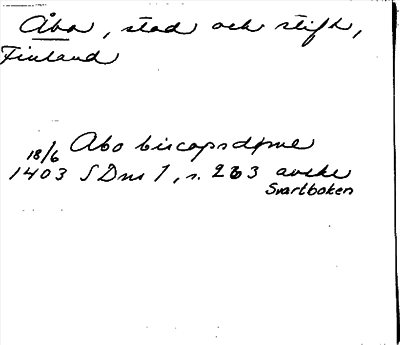 Åbo, stad och stift,
Finland
18/6 Abo biscopsdøme
1403 SDns 1, s. 263 avskr
Svartboken